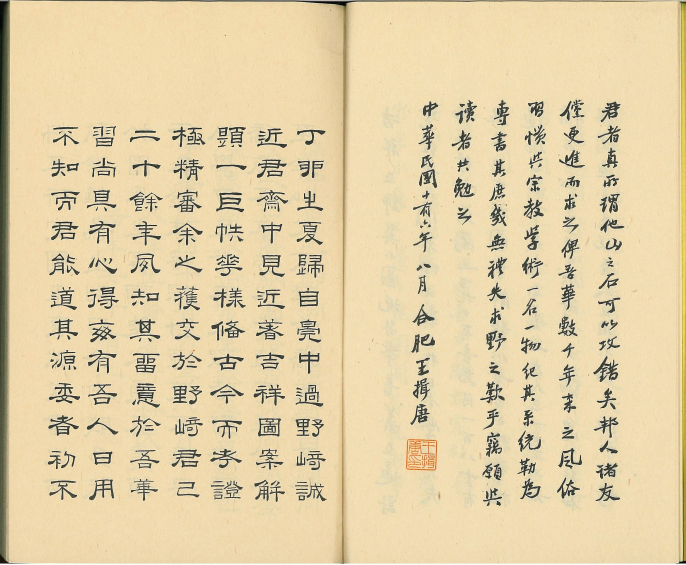 君者真所謂他山之石可以攻錯矣邦人诸友
儻更進而求之俾吾華數千年來之風俗
習慣與宗教學術一名一物紀其系統勒為
專書其庶幾無禮失求野之歎乎竊願與
读者共勉之
中華民國十有六年八月合肥王揖唐
王揖唐印
丁卯之夏歸自亳中過野崎誠
近君齋中見近著吉祥圖案解
題一巨帙花樣備古今而考證
極精審余之獲交於野崎君已
二十餘年夙知其留意於吾華
習尚具有心得玆有吾人日用
不知而君能道其源委者初不